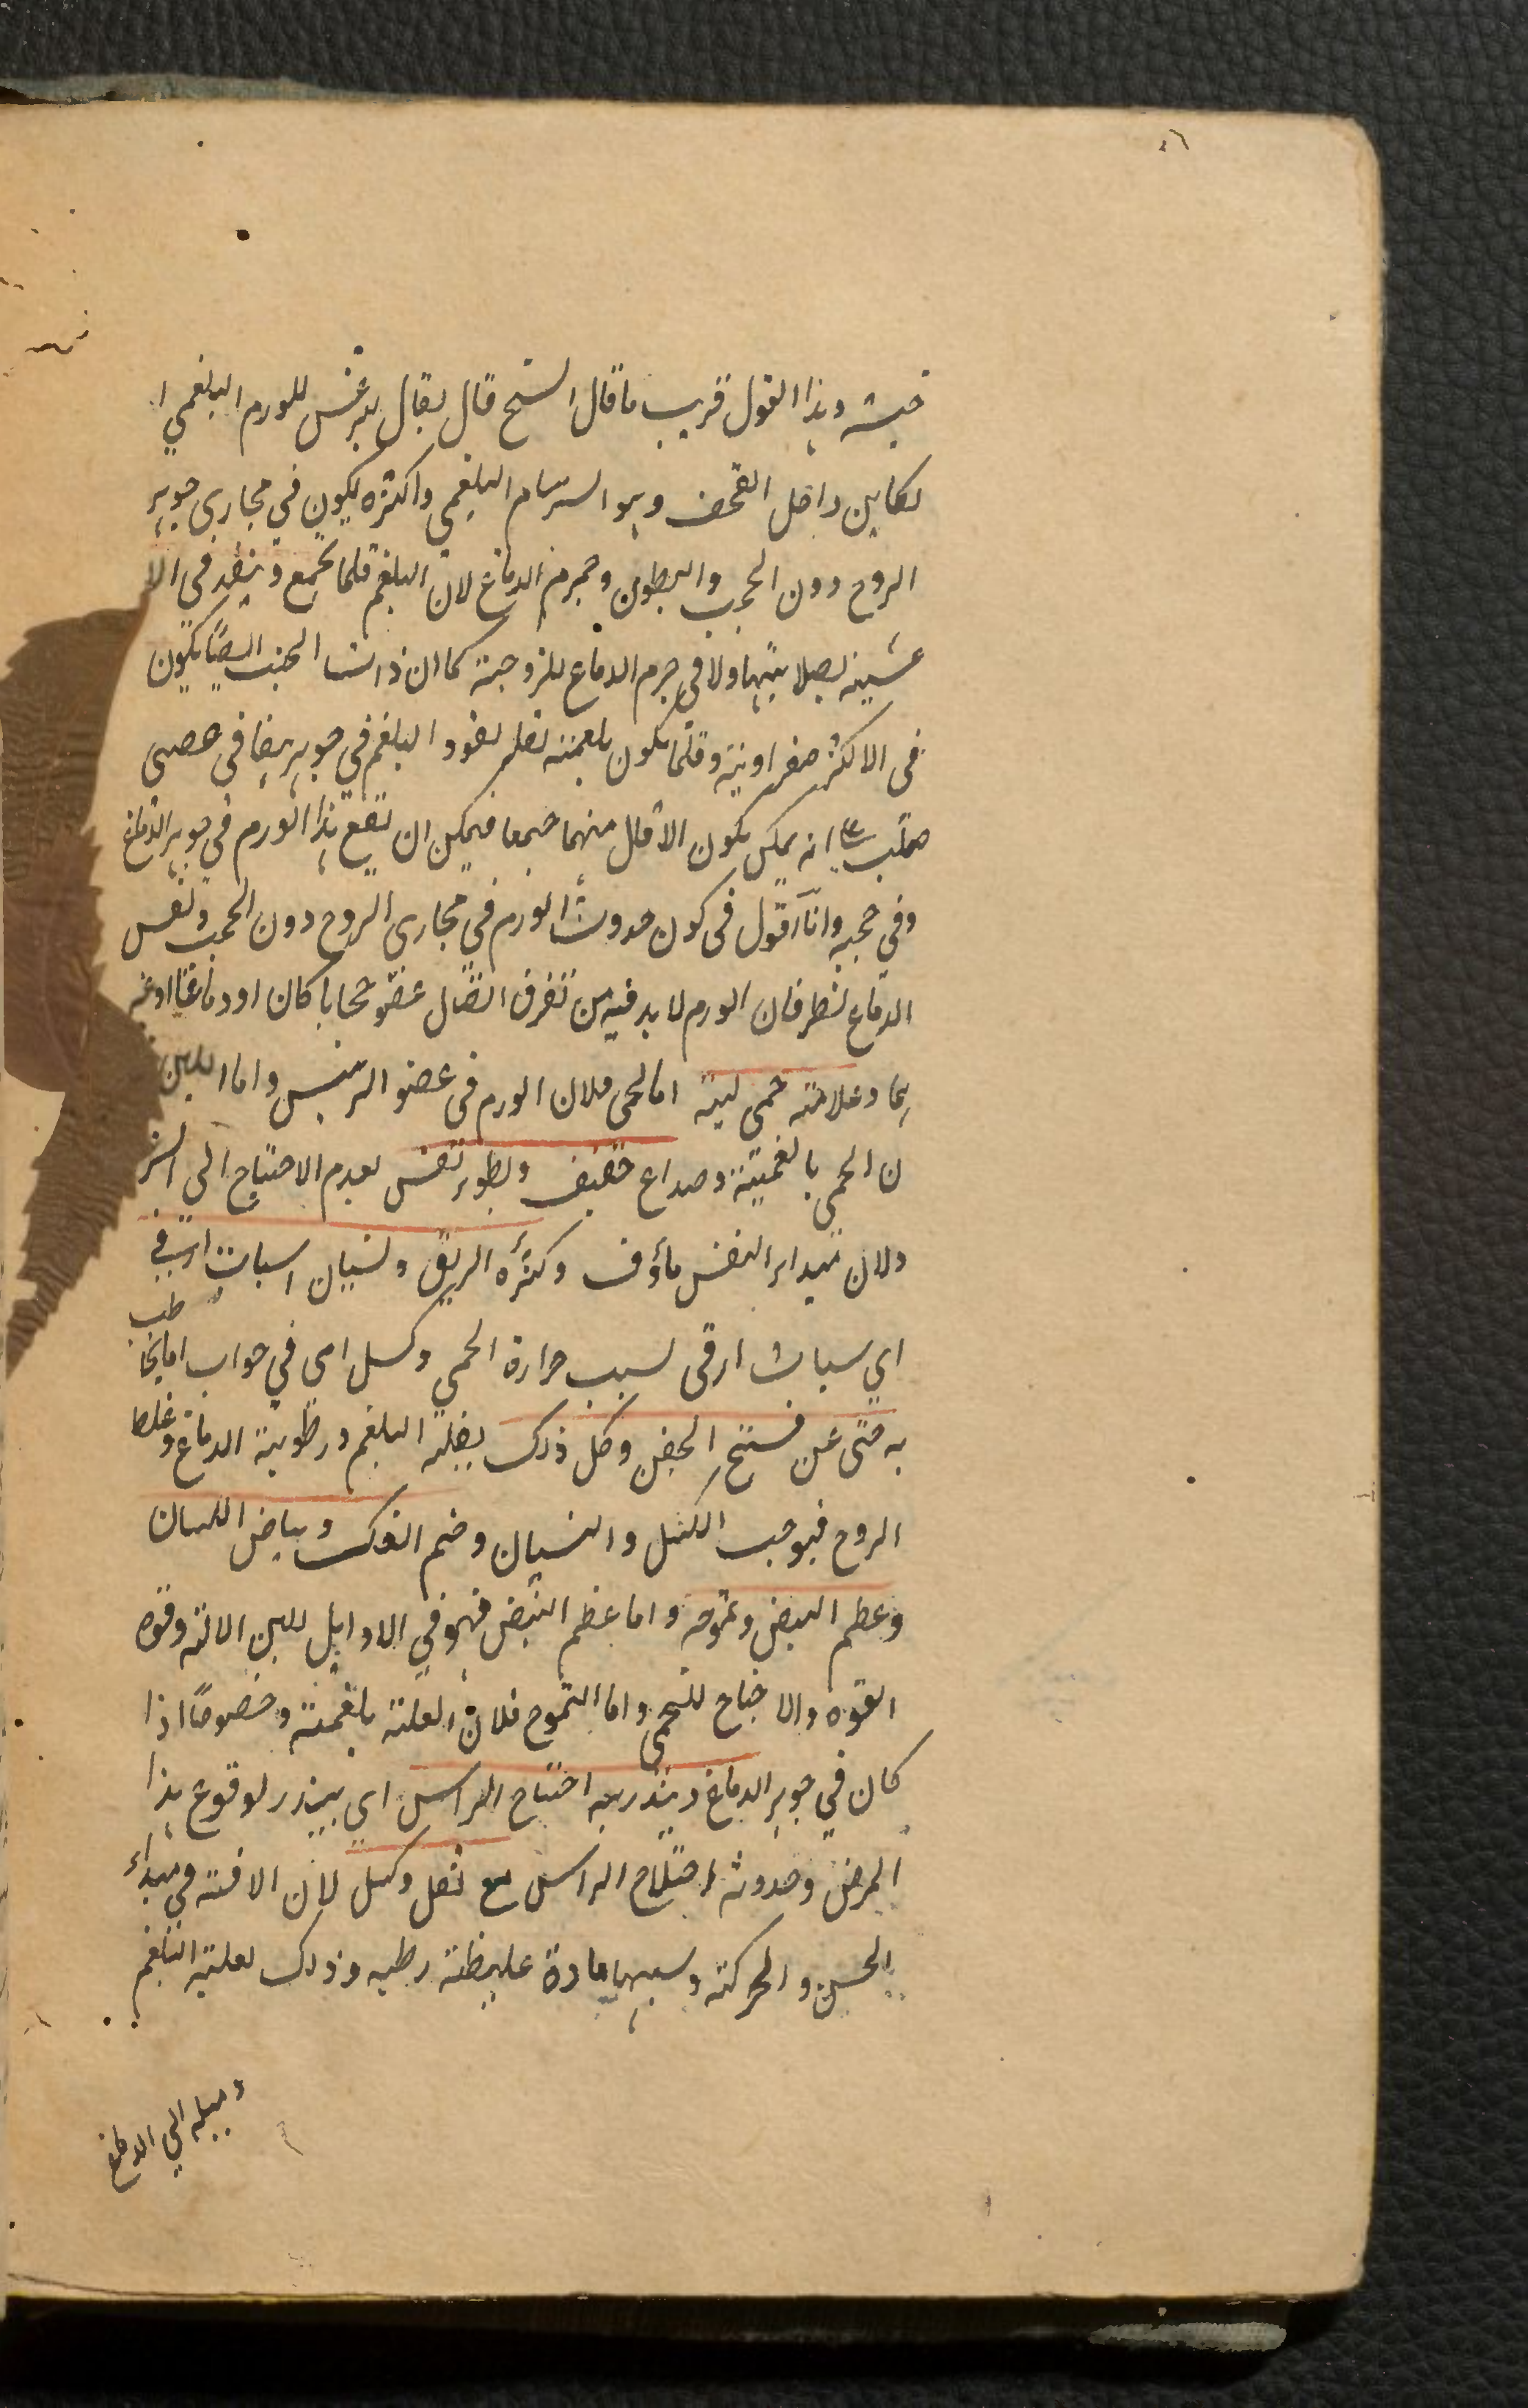 خبثه وهذا القول قريب ما قال الشيخ قال يقال ليثرغس للورم البلغمي ا
لكاين داخل القحف وهو السرسام البلغمي واكثره يكون في مجاري جوهر
الروح دون الحجب والبطون وجرم الدماغ لان البلغم قلما يجمع وينفد في الا
غشية لصلابتها ولا في جرم الدماغ للزوجته كما ان ذات الجنب ايضًا يكون
في الاكثر صفراوية وقلما يكون بلغمية لقلة نفوذ البلغم في جوهر
صلب انه يمكن يكون الاقلال منهما جميعا فيمكن ان تقع هذا الورم في جوهر الدماغ
وفي حجبه وانا اقول في كون حدوث الورم في مجاري الروح دون الحجب ونفس
الدماغ نظر فان الورم لا بد فيه من تفرق اتصال عضو حجابا كان او دماغا او غير
هما وعلامته حمى لينة اما الحمى فلان الورم في عضو الرئيس واما اللين
ن الحمى بالغمية وصداع خفيف وبطوء تنفس لعدم الاحتياج الى
ولان مبداء النفس مأوف وكثرة الريق ونسيان اسبات ارقي
اي سبات ارقى لسبب حرارة الحمى وكسل اى في جواب اما يخاطب
به حتى عن فتح الجفن وكل ذلك لغلبة البلغم ورطوبة الدماغ وغلط
الروح فيوجب الكسل والنسيان وضم الفك وبياض اللسان
وعظم النبض وتموجه واما عظم النبض فهو في الاوايل للين الالة وقوه
القوه والاحتياج للحمى واما التموج فلان العلة بلغمية وخصوصًا اذا
كان في جوهر الدماغ وينذر به اختلاج الراس اى ينذر لوقوع هذا
المرض وحدوثه اختلاج الراس مع ثقل وكسل لان الافة في مبداء
الحس والحركة وسببها مادة غليظة رطبه وذلك لغلبة البلغم
وميله الي الدماغ